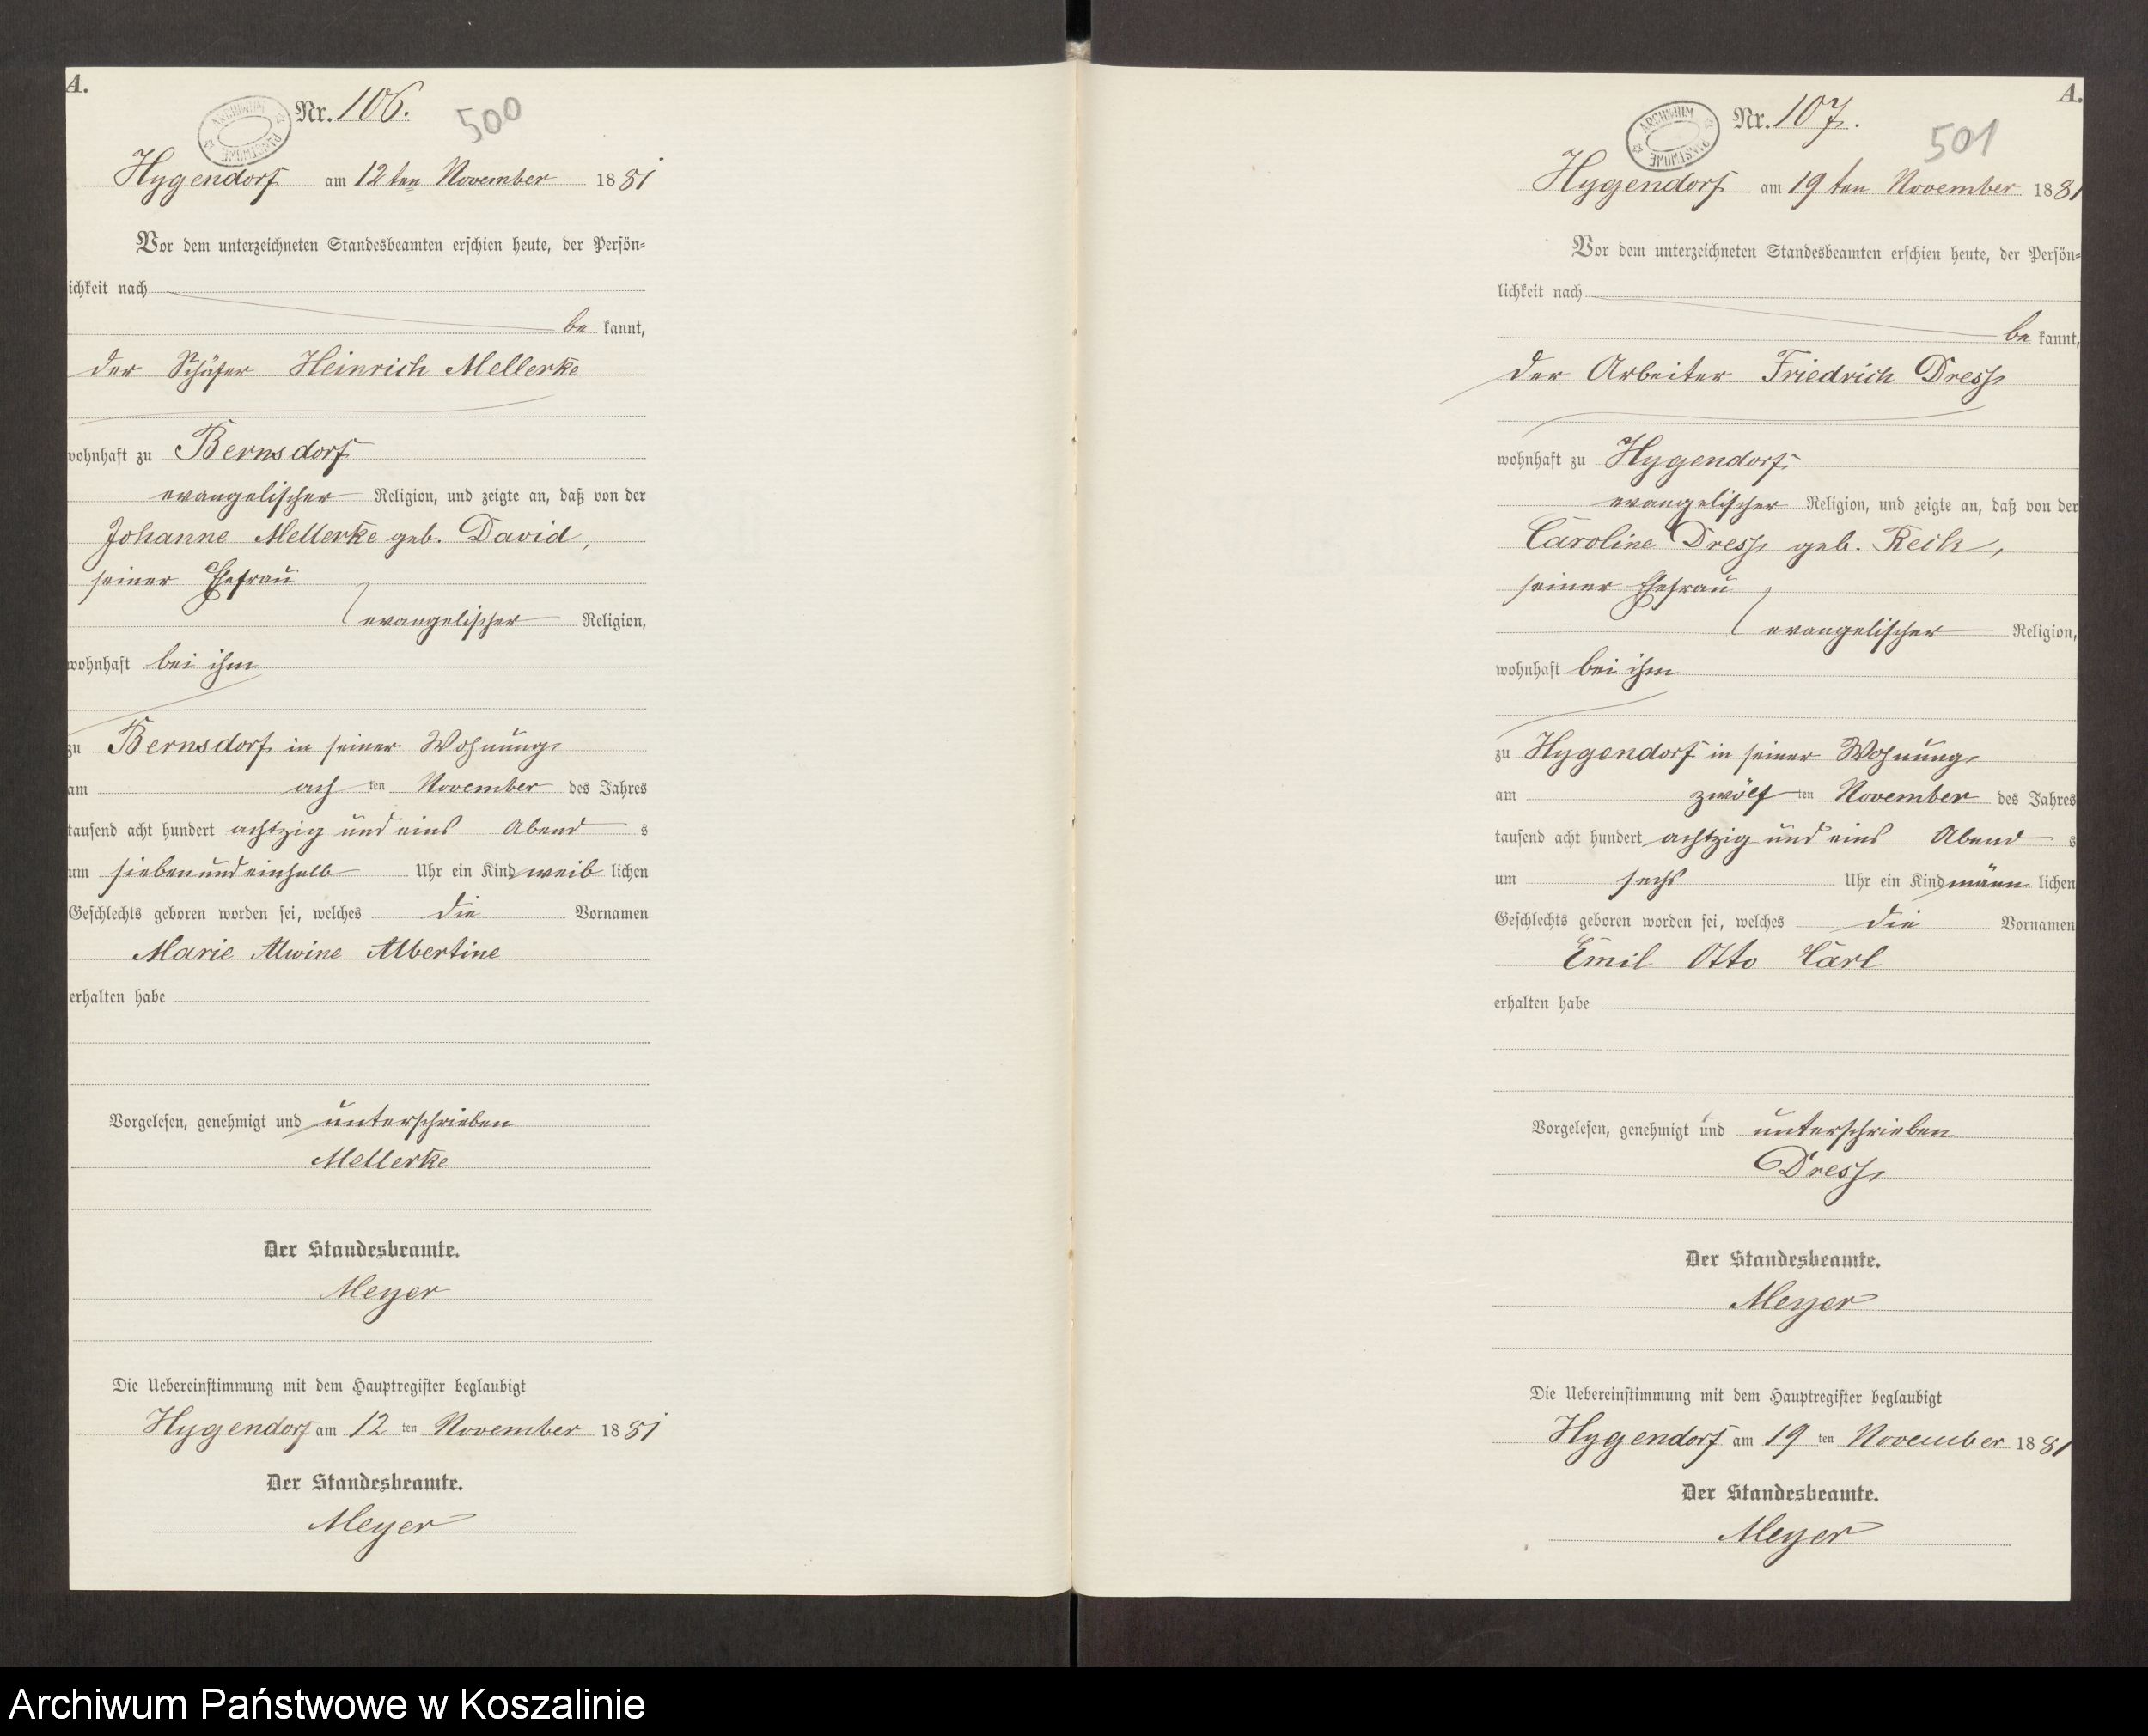 A.
Nr. 106.
500
ARCHIWUM PAŃSTWOWE
Hygendorf am 12ten November 1881
Vor dem unterzeichneten Standesbeamten erschien heute, der Persön-
lichkeit nach
be kannt,
der Schäfer Heinrich Mellerke
wohnhaft zu Bernsdorf
evangelischer Religion, und zeigte an, daß von der
Johanne Mellerke geb. David,
seiner Ehefrau
evangelischer Religion,
wohnhaft bei ihm
zu Bernsdorf in seiner Wohnung
am ach ten November des Jahres
tausend acht hundert achtzig und eins Abend s
um sieben und einhalb Uhr ein Kind weib lichen
Geschlechts geboren worden sei, welches die Vornamen
Marie Alwine Albertine
erhalten habe
Vorgelesen, genehmigt und unterschrieben
Mellerke
Der Standesbeamte.
Meyer
Die Uebereinstimmung mit dem Hauptregister beglaubigt
Hygendorf am 12 ten November 1881
Der Standesbeamte.
Meyer
A.
Nr. 107.
501
ARCHIWUM PAŃSTWOWE
Hygendorf am 19ten November 1881
Vor dem unterzeichneten Standesbeamten erschien heute, der Persön-
lichkeit nach
be kannt,
der Arbeiter Friedrich Dress
wohnhaft zu Hygendorf
evangelischer Religion, und zeigte an, daß von der
Caroline Dress geb. Reck,
seiner Ehefrau
evangelischer Religion,
wohnhaft bei ihm
zu Hygendorf in seiner Wohnung
am zwölf ten November des Jahres
tausend acht hundert achtzig und eins Abend s
um sechs Uhr ein Kind männ lichen
Geschlechts geboren worden sei, welches die Vornamen
Emil Otto Carl
erhalten habe
Vorgelesen, genehmigt und unterschrieben
Dress
Der Standesbeamte.
Meyer
Die Uebereinstimmung mit dem Hauptregister beglaubigt
Hygendorf am 19 ten November 1881
Der Standesbeamte.
Meyer
Archiwum Państwowe w Koszalinie